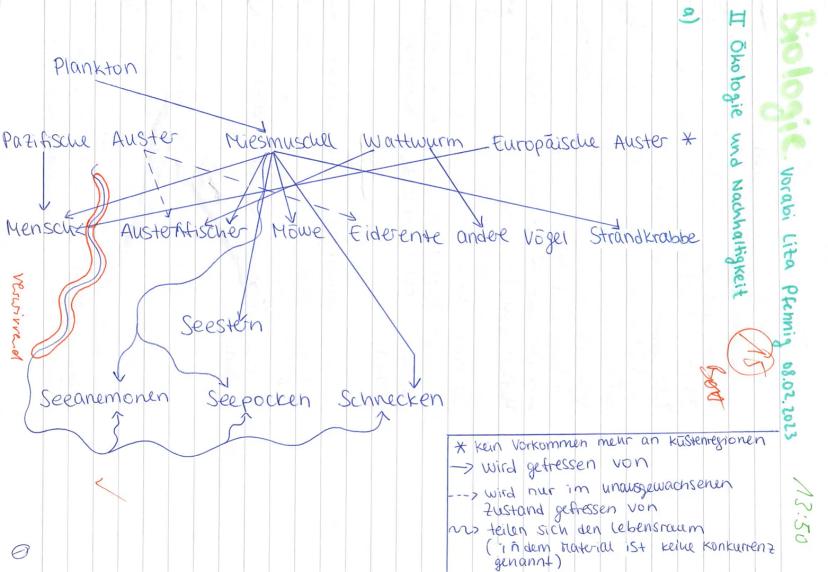 Biologie Vorabi Lita Pfennig 08.02.2023
13:50
II Ökologie und Nachhaltigkeit
15
a)
Plankton
Pazifische Auster Miesmuschel Wattwurm Europäische Auster *
Mensch Austernfischer Möwe Eiderente andere Vögel Strandkrabbe
verwirrend
Seestern
Seeanemonen Seepocken Schnecken
* kein Vorkommen mehr an Küstenregionen
→ wird gefressen von
---> wird nur im unausgewachsenen
Zustand gefressen von
~> teilen sich den Lebensraum
(in dem Material ist keine Konkurrenz
genannt)